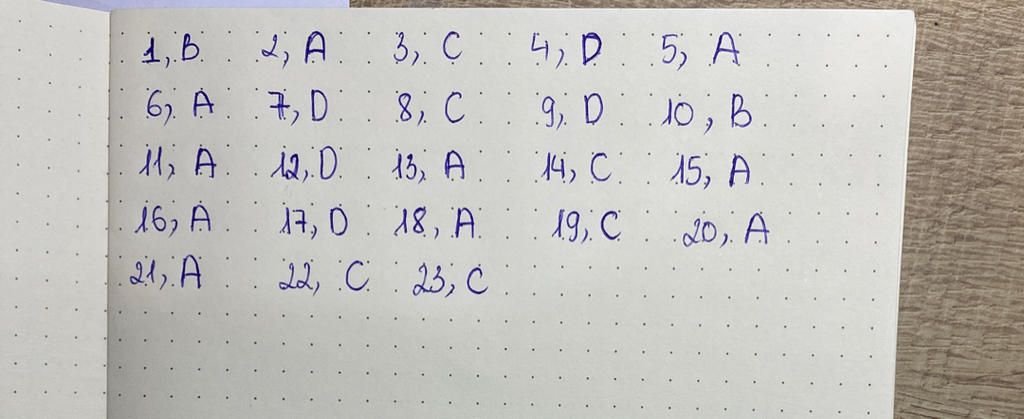 1, B 2, A 3, C 4, D 5, A
6, A 7, D 8, C 9, D 10, B
11, A 12, D 13, A 14, C 15, A
16, A 17, D 18, A 19, C 20, A
21, A 22, C 23, C